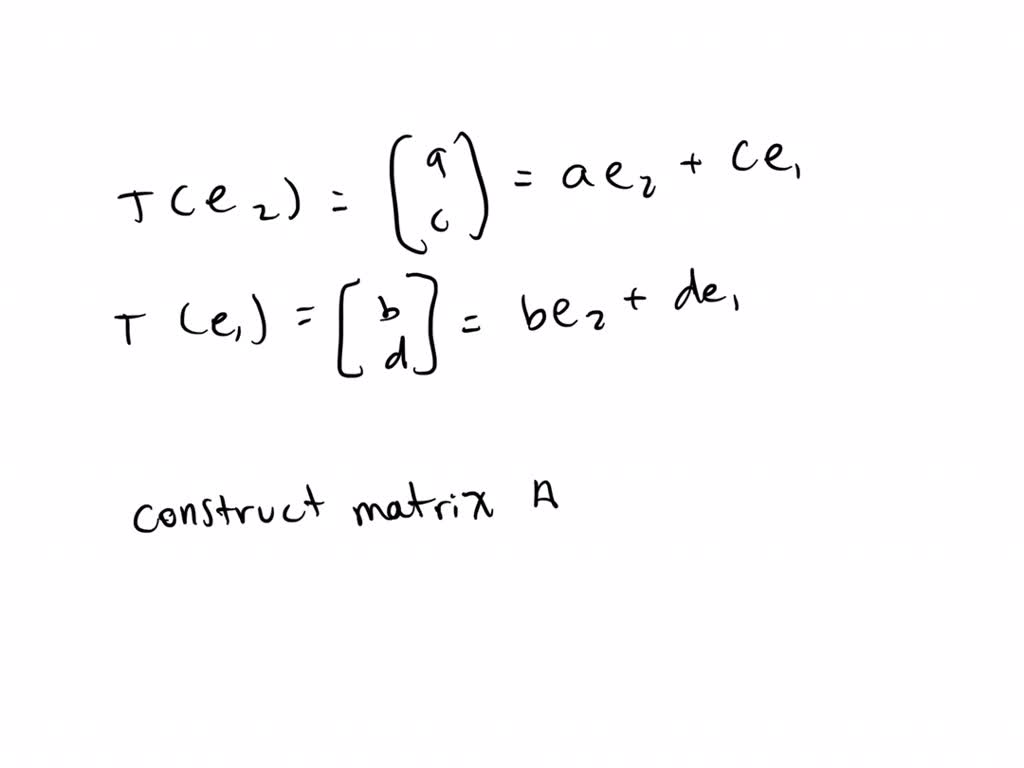 T(e₂) = (a c) = ae₂ + ce₁
T(e₁) = [b d] = be₂ + de₁
construct matrix A